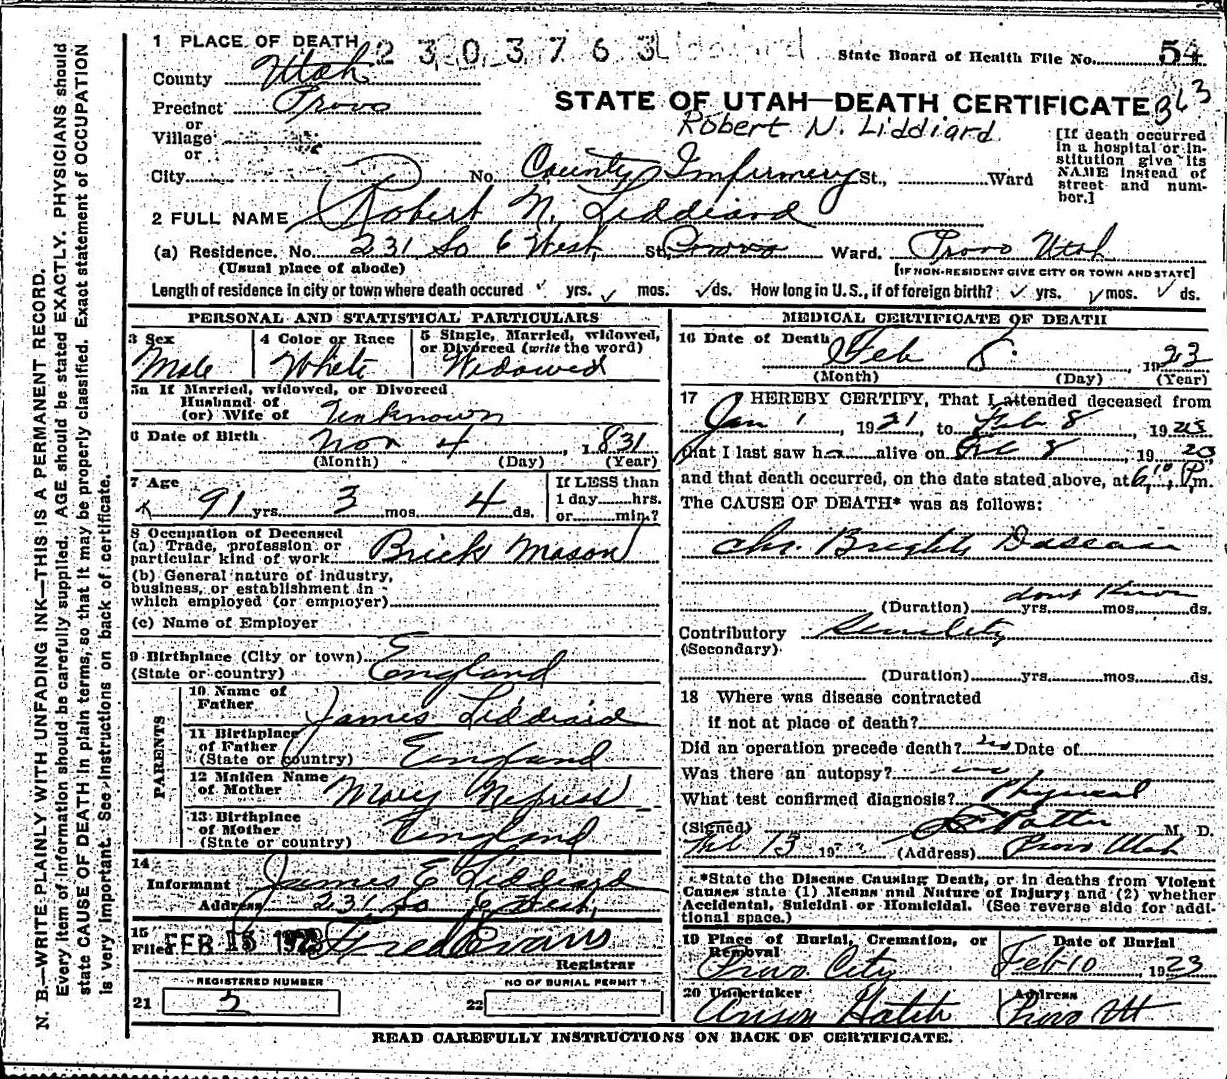 1 PLACE OF DEATH 2303763 Liddiard
State Board of Health File No. 54
County Utah
Precinct Provo
or
Village
or
STATE OF UTAH—DEATH CERTIFICATE 363
Robert N. Liddiard
[If death occurred in a hospital or in-
stitution give its
NAME instead of
street and num-
ber.]
City No. County Infirmery St., Ward
2 FULL NAME Robert N. Liddiard
(a) Residence. No. 231 So 6 West, St. Provo Ward. Provo Utah
(Usual place of abode) [IF NON-RESIDENT GIVE CITY OR TOWN AND STATE]
Length of residence in city or town where death occured yrs. mos. ds. How long in U. S., if of foreign birth? yrs. mos. ds.
PERSONAL AND STATISTICAL PARTICULARS
3 Sex
Male
4 Color or Race
White
5 Single, Married, widowed,
or Divorced (write the word)
Widowed
5a If Married, widowed, or Divorced
Husband of
(or) Wife of Unknown
6 Date of Birth Nov 4, 1831
(Month) (Day) (Year)
7 Age
91 yrs. 3 mos. 4 ds.
If LESS than
1 day hrs.
or min.?
8 Occupation of Deceased
(a) Trade, profession or
particular kind of work Brick Mason
(b) General nature of industry,
business, or establishment in
which employed (or employer)
(c) Name of Employer
9 Birthplace (City or town)
(State or country) England
PARENTS
10 Name of
Father James Liddiard
11 Birthplace
of Father
(State or country) England
12 Maiden Name
of Mother Mary
13 Birthplace
of Mother
(State or country) England
14
Informant James E Liddiard
Address 231 So 6 West,
15
Filed FEB 15 1923 Fred Evans
Registrar
REGISTERED NUMBER
21 5
NO OF BURIAL PERMIT
22
MEDICAL CERTIFICATE OF DEATH
16 Date of Death Feb 8, 1923
(Month) (Day) (Year)
17 I HEREBY CERTIFY, That I attended deceased from
Jan 1, 1921, to Feb 8, 1923
that I last saw h alive on Feb 8, 19
and that death occurred, on the date stated above, at 6,10 P.m.
The CAUSE OF DEATH* was as follows:
chr. Brights Disease
dont Know
(Duration) yrs. mos. ds.
Contributory Senility
(Secondary)
(Duration) yrs. mos. ds.
18 Where was disease contracted
if not at place of death?
Did an operation precede death? no Date of
Was there an autopsy? no
What test confirmed diagnosis? Physical
(Signed) M. D.
Feb 13 19 (Address) Provo Utah
*State the Disease Causing Death, or in deaths from Violent
Causes state (1) Means and Nature of Injury; and (2) whether
Accidental, Suicidal or Homicidal. (See reverse side for addi-
tional space.)
19 Place of Burial, Cremation, or
Removal
Provo City
Date of Burial
Feb 10, 1923
20 Undertaker
Anson Hatch
Address
Provo Ut
READ CAREFULLY INSTRUCTIONS ON BACK OF CERTIFICATE.
N. B.—WRITE PLAINLY WITH UNFADING INK—THIS IS A PERMANENT RECORD.
Every item of information should be carefully supplied. AGE should be stated EXACTLY. PHYSICIANS should
state CAUSE OF DEATH in plain terms, so that it may be properly classified. Exact statement of OCCUPATION
is very important. See instructions on back of certificate.